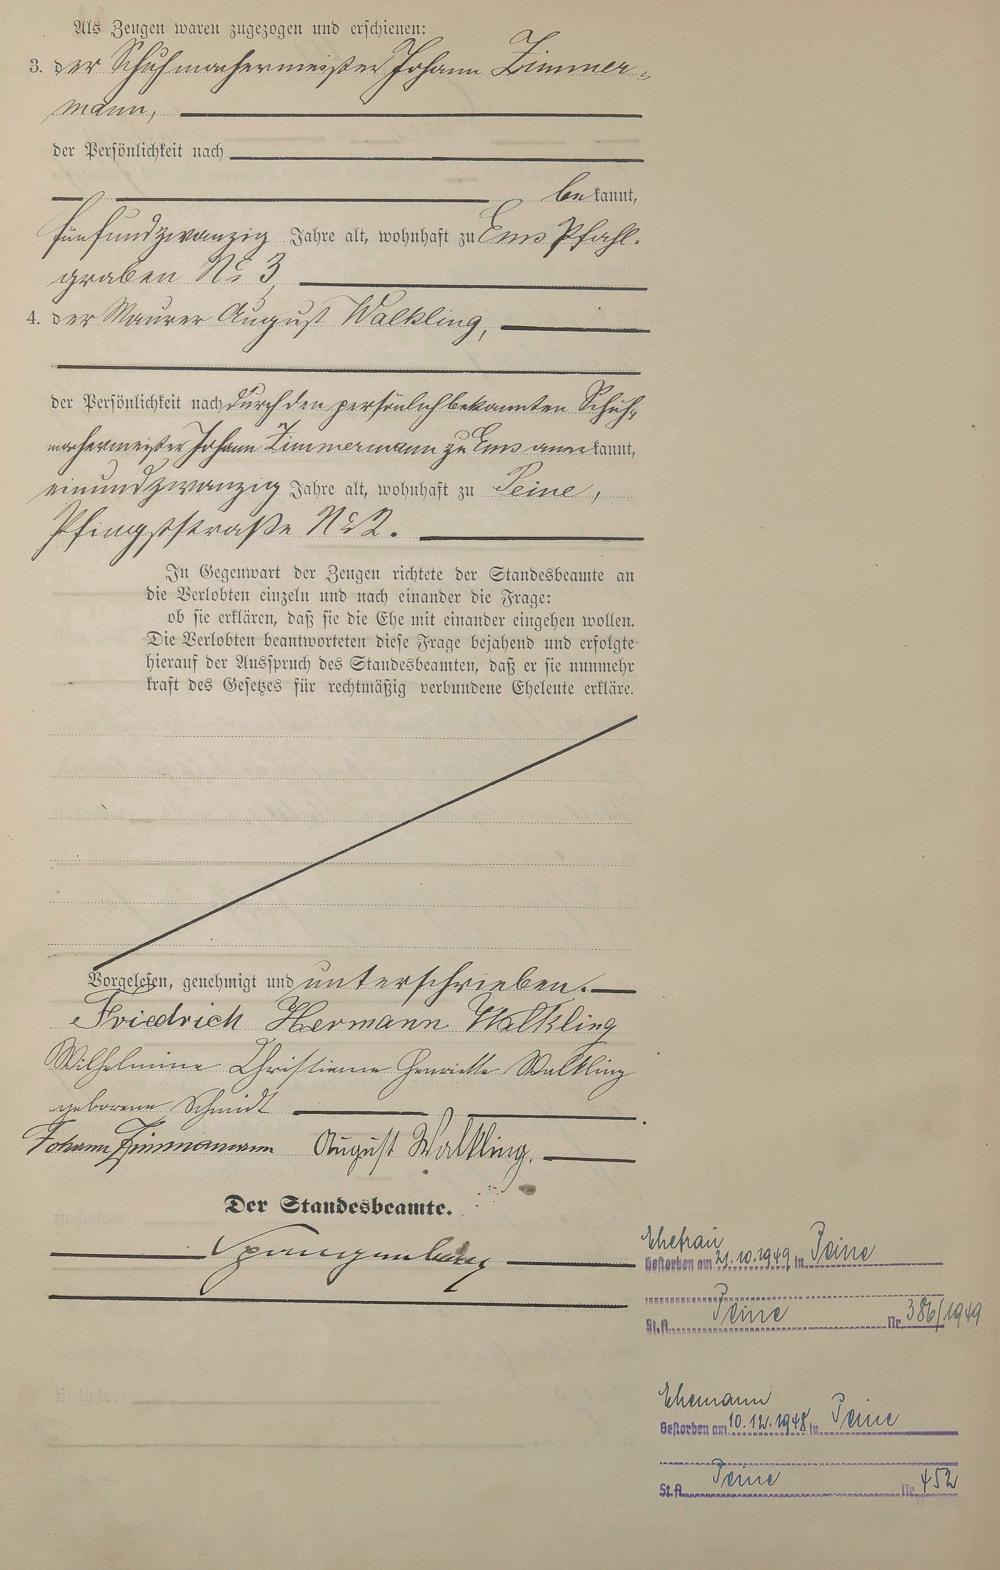 Als Zeugen waren zugezogen und erschienen:
3. der Schuhmachermeister Johann Zimmer-
mann,
der Persönlichkeit nach
bekannt,
fünfundzwanzig Jahre alt, wohnhaft zu Ems Pfahl-
graben No 3,
4. der Maurer August Walkling,
der Persönlichkeit nach durch den persönlich bekannten Schuh-
machermeister Johann Zimmermann zu Ems anerkannt,
einundzwanzig Jahre alt, wohnhaft zu Peine,
Pfingststraße No 2.
In Gegenwart der Zeugen richtete der Standesbeamte an
die Verlobten einzeln und nach einander die Frage:
ob sie erklären, daß sie die Ehe mit einander eingehen wollen.
Die Verlobten beantworteten diese Frage bejahend und erfolgte
hierauf der Ausspruch des Standesbeamten, daß er sie nunmehr
kraft des Gesetzes für rechtmäßig verbundene Eheleute erkläre.
Vorgelesen, genehmigt und unterschrieben.
Friedrich Hermann Walkling
Wilhelmine Christianne Henriette Walkling
geborene Schmidt
Johann Zimmermann August Walkling.
Der Standesbeamte.
Spangenberg
Ehefrau
Gestorben am 21.10.1949 in Peine
St.A. Peine Nr. 386/1949
Ehemann
Gestorben am 10.12.1948 in Peine
St.A. Peine Nr. 452